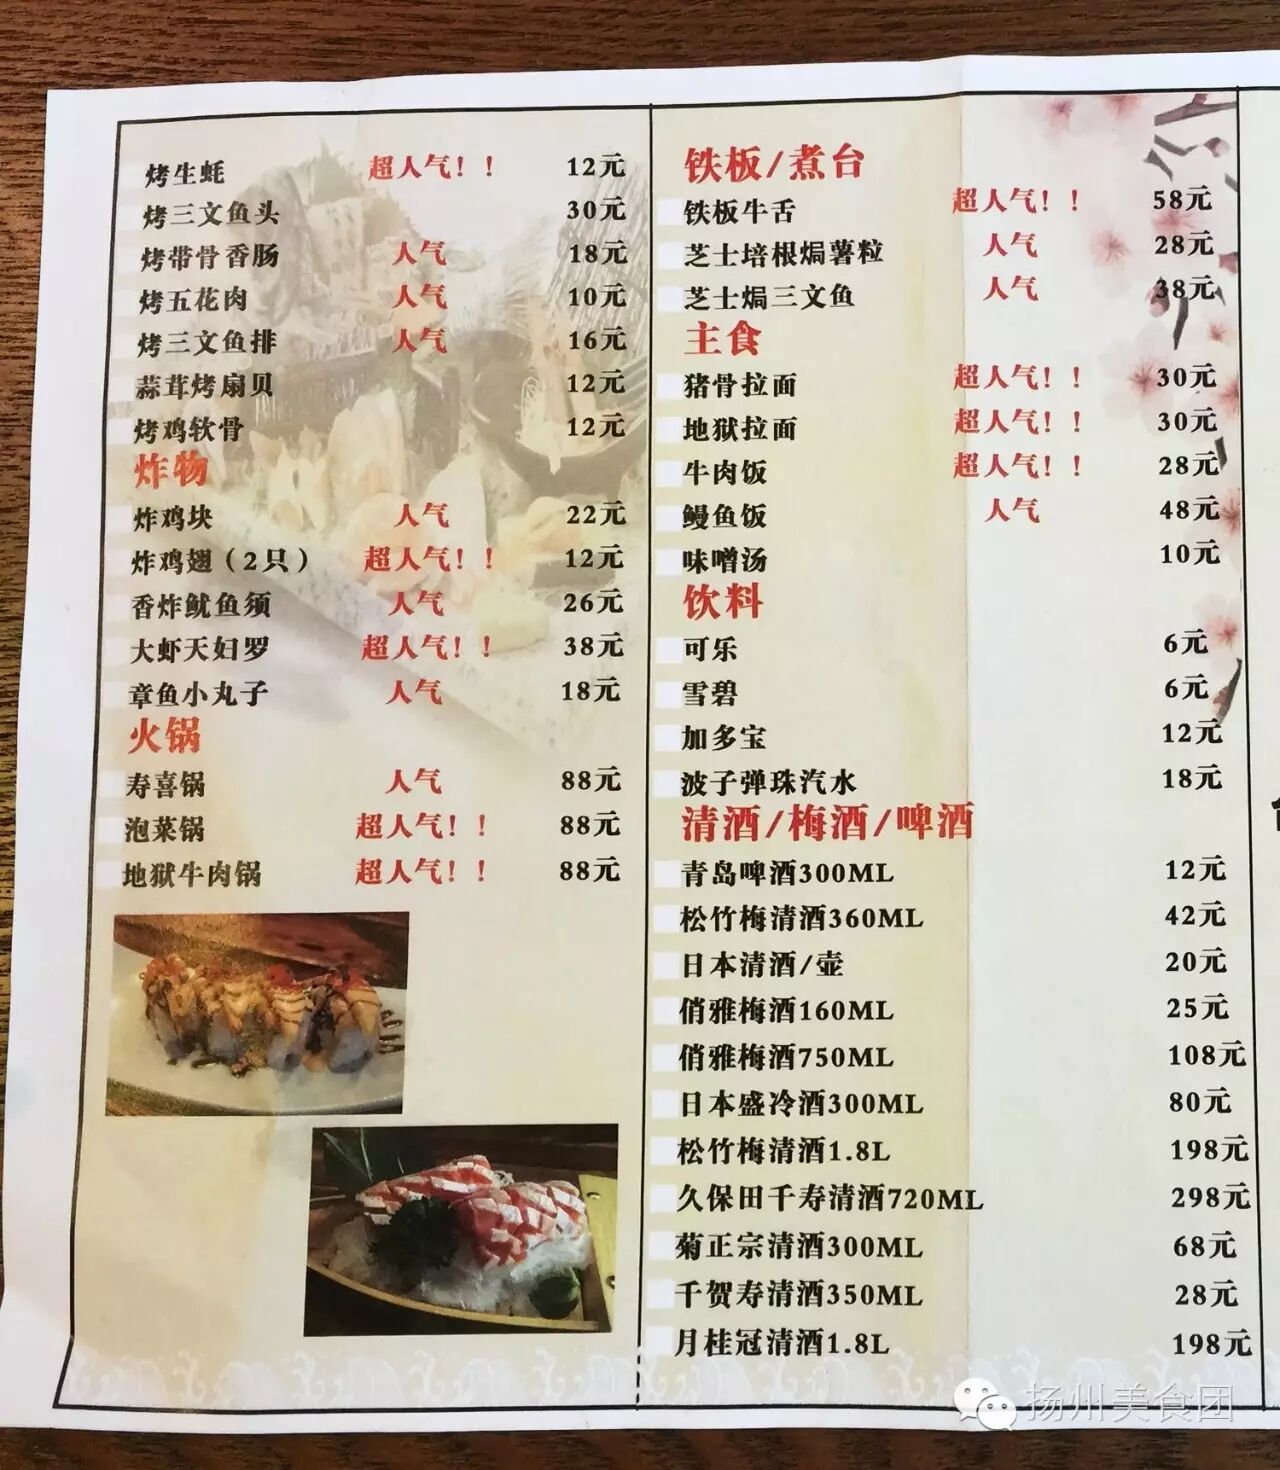 烤生蚝 超人气！！ 12元
烤三文鱼头 30元
烤带骨香肠 人气 18元
烤五花肉 人气 10元
烤三文鱼排 人气 16元
蒜茸烤扇贝 12元
烤鸡软骨 12元
炸物
炸鸡块 人气 22元
炸鸡翅（2只） 超人气！！ 12元
香炸鱿鱼须 人气 26元
大虾天妇罗 超人气！！ 38元
章鱼小丸子 人气 18元
火锅
寿喜锅 人气 88元
泡菜锅 超人气！！ 88元
地狱牛肉锅 超人气！！ 88元
铁板/煮台
铁板牛舌 超人气！！ 58元
芝士培根焗薯粒 人气 28元
芝士焗三文鱼 人气 38元
主食
猪骨拉面 超人气！！ 30元
地狱拉面 超人气！！ 30元
牛肉饭 超人气！！ 28元
鳗鱼饭 人气 48元
味噌汤 10元
饮料
可乐 6元
雪碧 6元
加多宝 12元
波子弹珠汽水 18元
清酒/梅酒/啤酒
青岛啤酒300ML 12元
松竹梅清酒360ML 42元
日本清酒/壶 20元
俏雅梅酒160ML 25元
俏雅梅酒750ML 108元
日本盛冷酒300ML 80元
松竹梅清酒1.8L 198元
久保田千寿清酒720ML 298元
菊正宗清酒300ML 68元
千贺寿清酒350ML 28元
月桂冠清酒1.8L 198元
扬州美食团